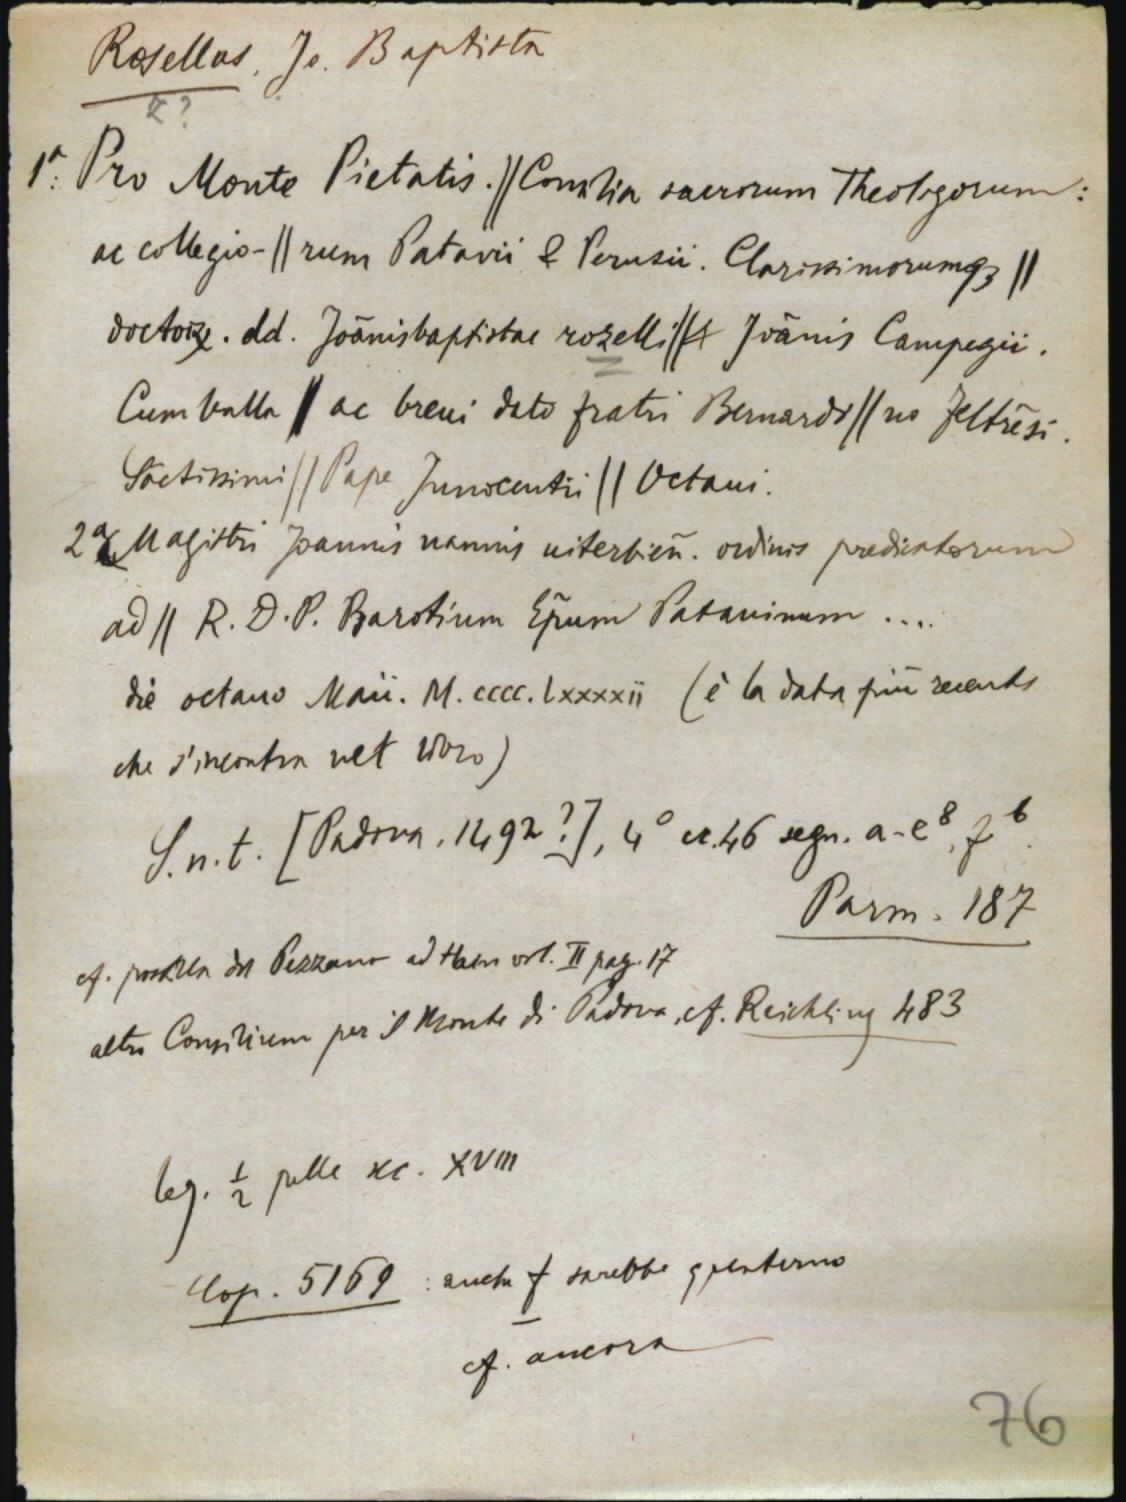 Rosellus, Jo. Baptista
z?
1ª: Pro Monte Pietatis. || Consilia sacrorum Theologorum:
ac collegio- || rum Patavii & Perusii. Clarissimorumqȝ ||
doctorꝝ. dd. Joānisbaptistae rozelli || & Joānis Campegii.
Cum bulla || ac breui dato fratri Bernardi || no feltrēsi.
Sāctissimi || Pape Innocentii || Octaui.
2ª Magistri Joannis nannis uiterbieñ. ordinis predicatorum
ad || R. D. P. Barotium Ep̄um Patauinum ....
die octauo Maii. M. cccc. lxxxxii (è la data più recente
che s'incontra nel libro)
S. n. t. [Padova, 1492?], 4º cc. 46 segn. a-e⁸, f⁶.
Parm. 187
cf. postilla del Pezzana ad Hain vol. II pag. 17
altro Consilium per il Monte di Padova, cf. Reichling 483
leg. ½ pelle sec. XVIII
Cop. 5169 : anche f sarebbe quaterno
cf. ancora
76